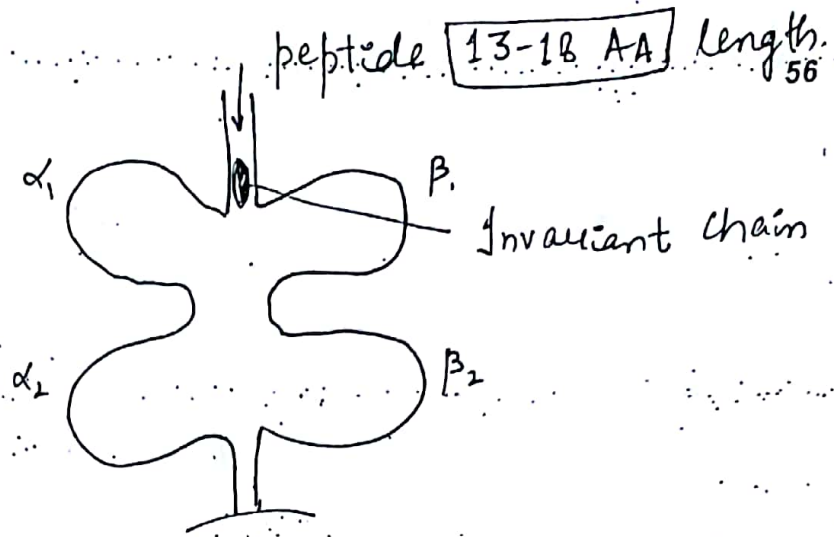 peptide 13-18 AA length.
56
α₁
β₁
Invariant chain
α₂
β₂